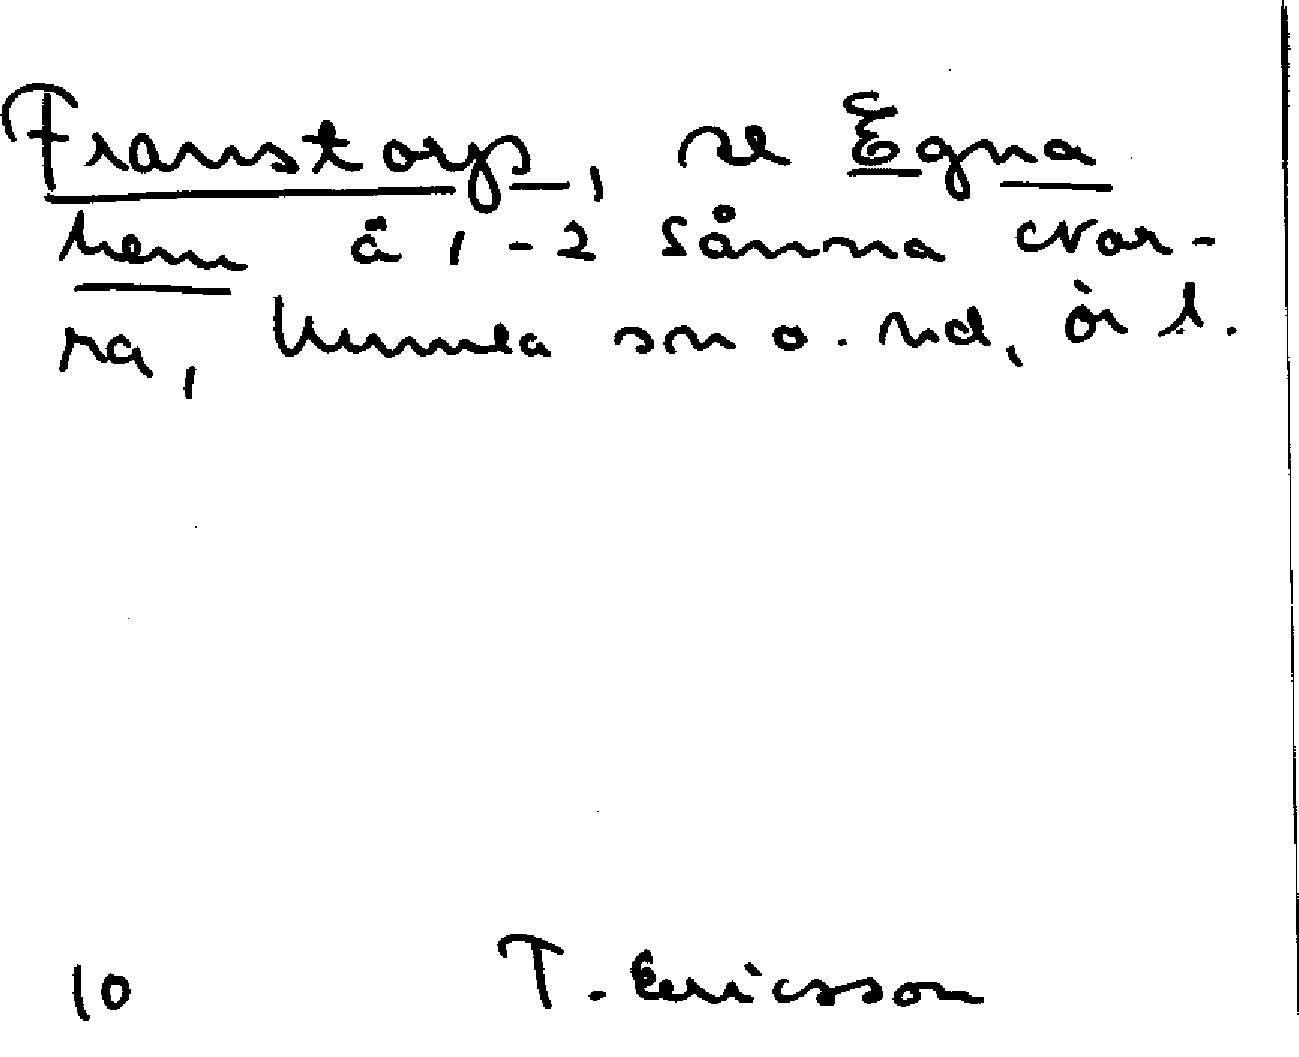 Franstorp, se Egna
hem å 1-2 Sånna Nor-
ra, Kumla sn o. hd, ör l.
10 T. Ericsson